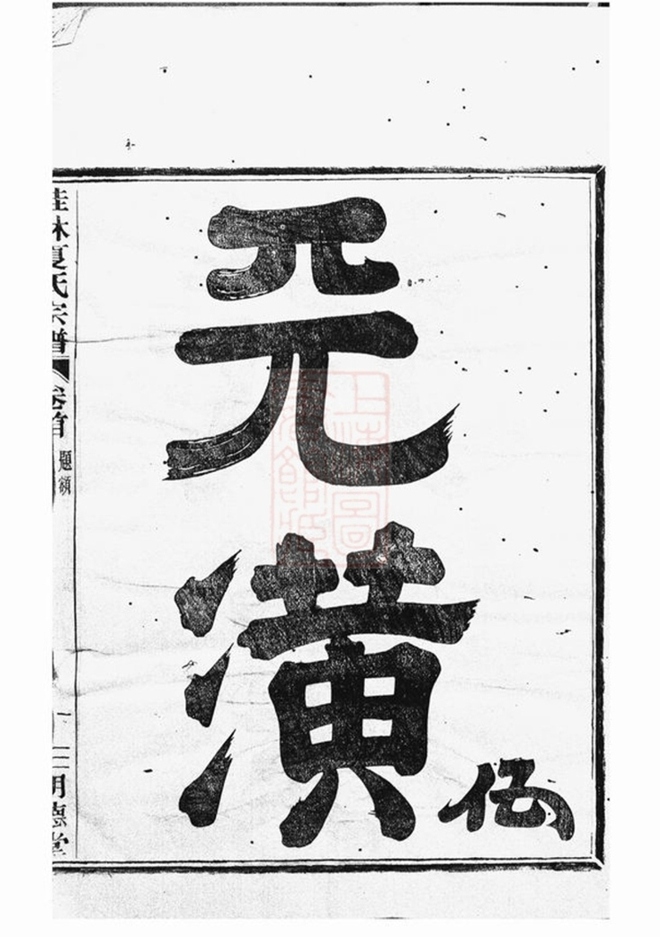 天潢
桂林夏氏宗譜 卷首 題額 明德堂